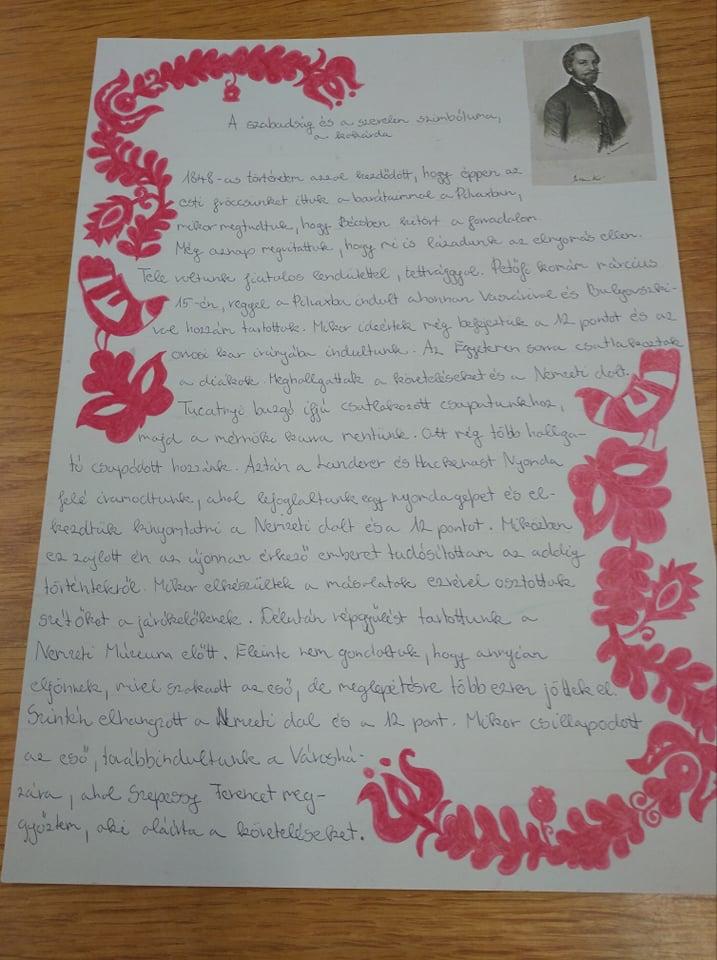 A szabadság és a szerelem szimbóluma,
a kokárda
1848-as történetem azzal kezdődött, hogy éppen az
esti fröccsünket ittuk a barátaimmal a Pilvaxban,
mikor megtudtuk, hogy Bécsben kitört a forradalom.
Még aznap megvitattuk, hogy mi is lázadunk az elnyomás ellen.
Tele voltunk fiatalos lendülettel, tettvággyal. Petőfi korán március
15-én, reggel a Pilvaxba indult ahonnan Vasvárival és Bulyovszki-
val hozzám tartottak. Mikor ideértek még befejeztük a 12 pontot és az
orvosi kar irányába indultunk. Az Egyetemen sorra csatlakoztak
a diákok. Meghallgatták a követeléseket és a Nemzeti dalt.
Tucatnyi buzgó ifjú csatlakozott csapatunkhoz,
majd a mérnöki karra mentünk. Ott még több hallga-
tó csapódott hozzánk. Aztán a Landerer és Heckenast Nyomda
felé iramodtunk, ahol lefoglaltunk egy nyomdagépet és el-
kezdtük kinyomtatni a Nemzeti dalt és a 12 pontot. Miközben
ez zajlott én az újonnan érkező embereket tudósítottam az addig
történtekről. Mikor elkészültek a másolatok ezrével osztottuk
szét őket a járókelőknek. Délután népgyűlést tartottunk a
Nemzeti Múzeum előtt. Eleinte nem gondoltuk, hogy annyian
eljönnek, mivel szakadt az eső, de meglepetésre több ezren jöttek el.
Szintén elhangzott a Nemzeti dal és a 12 pont. Mikor csillapodott
az eső, továbbindultunk a Városhá-
zára, ahol Szepessy Ferencet meg-
győztem, aki aláírta a követeléseket.